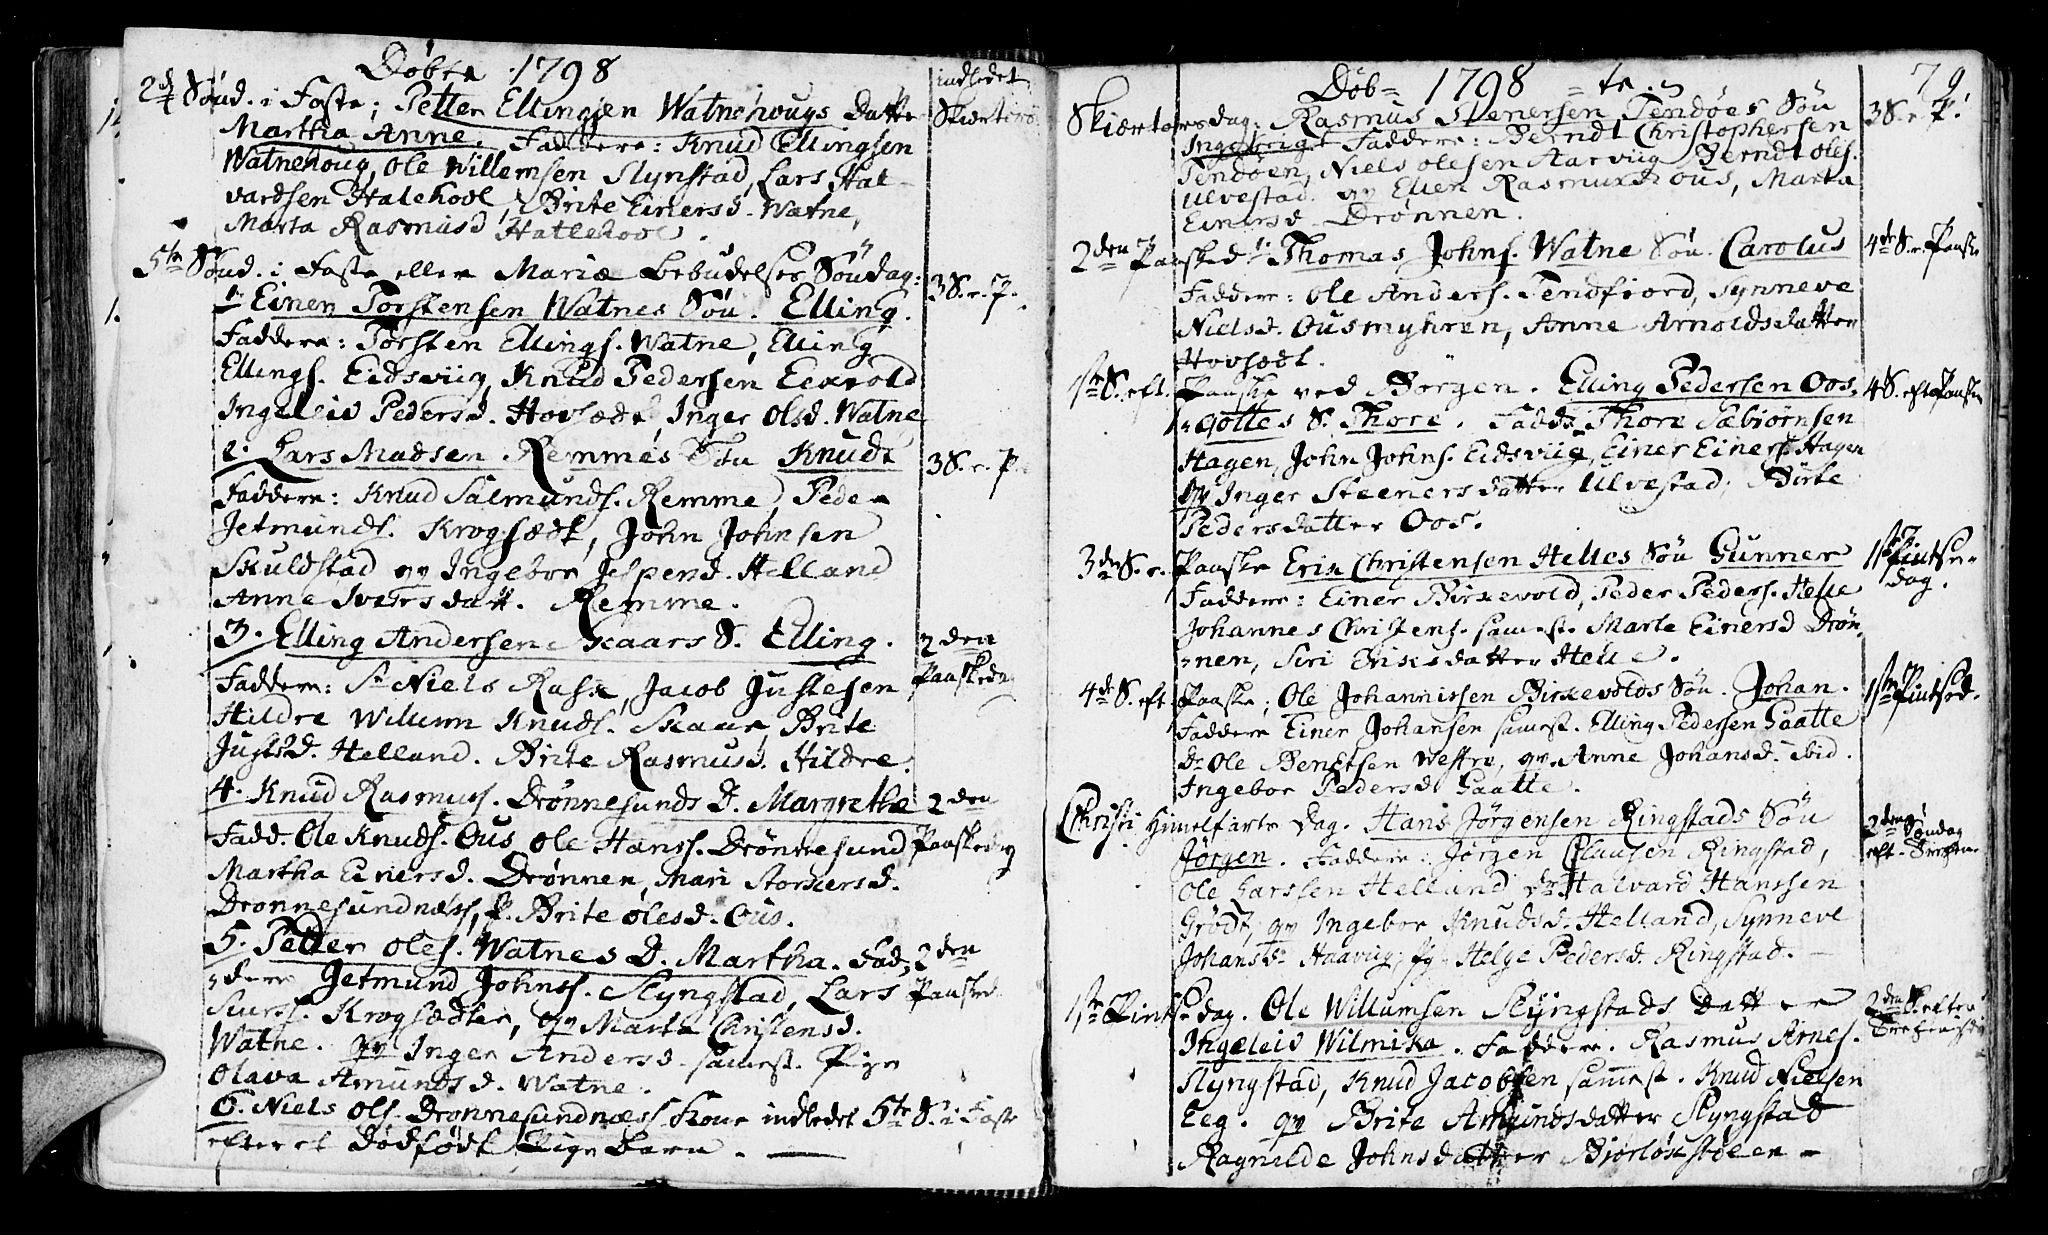 Døbte 1798
indledet
2d Sønd. i Faste; Petter Ellingsen Watnehougs Datter
Skiertors
Martha Anne. Faddere: Knud Ellingsen
Watnehoug, Ole Willemsen Slynstad, Lars Hal-
vardsen Hatlehoel, Brite Einersd. Watne,
Marta Rasmusd Hatlehoel.
5te Sønd. i Faste eller Mariæ Bebudelses Søndag:
1. Einer Torstensen Watnes Søn. Elling.
3 S. e. P.
Faddere: Torsten Ellings. Watne, Elling
Ellings. Eidsviig, Knud Pedersen Eexvold
Ingeleid Pedersd. Hovsædt, Inger Olsd. Watne
2. Lars Madsen Remmes Søn Knudt
3 S. e. P.
Faddere: Knud Salmunds. Remme, Peder
Jetmunds. Krogsædt, John Johnsen
Skuldstad qv Ingebor Jespend. Helland
Anne Iversdatt. Remme.
3. Elling Andersen Skaars S. Elling.
2den
Paaskeda
Faddere: Sr Niels Rask, Jacob Justesen
Hildre Willum Knuds. Skaar, Brite
Justsd. Helland. Brite Rasmusd. Hildre.
4. Knud Rasmuss. Drønnesunds D. Margrethe
2den
Fadd. Ole Knuds. Ous Ole Hanss. Drønnesund
Paaskedag
Martha Einersd. Drønnen, Mari Storkersd.
Drønnesundnæss, p. Brite Olesd. Ous.
5. Petter Oles. Watnes D. Martha. Fad-
2den
Paaske
dere Jetmund Johnss. Slyngstad, Lars
Siurss. Krogsædter, qv Marta Christensd.
Watne. qv Inger Andersd. samest. Pige
Olava Amundsd. Watne.
6. Niels Ols. Drønnesundnæss Kone indledet 5te S. i Faste
efter et Dødfødt Pige Barn.

Døb= 1798 =te
79
Skiærtorsdag. Rasmus Stenersen Tendøes Søn
3 S. e. P.
Ingebrigt Faddere: Berndt Christophersen
Tendøen, Niels Olesen Aarviig Berndt Oles.
Ulvestad. qv Ellen Rasmusd Ous, Marta
Einersd Drønnen.
2den Paasked. 1. Thomas Johns. Watne Søn. Carolus
4de S. e. Paaske
Faddere: Ole Anders. Tendfiord, Synneve
Nielsd. Ousmyhren, Anne Arnoldsdatter
Hovsædt.
1ste S. eft. Paaske ved Borgen. Elling Pedersen Oos,
4 S. eft Paaske
Gottes S. Thore. Fadd. Thore Sæbiørnsen
Hagen, John Johns. Eidsviig, Einer Einers. Hagen
qv Inger Steenersdatter Ulvestad, Birte
Pedersdatter Oos.
3de S. e. Paaske Erik Christensen Helles Søn Gunner
1ste Pintse-
dag.
Faddere: Einer Birkevold, Peder Peders. Helle
Johannes Christens. samest. Marte Einersd Drøn,
nen, Siri Eriksdatter Helle.
4de S. eft Paaske; Ole Johannissen Birkevolds Søn. Johan.
1ste Pintsed.
Faddere Einer Johansen samest. Elling Pedersen Gaatte
Dr. Ole Bentsen Westre, qv. Anne Johansd. ibid.
Ingebor Pedersd. Gaatte.
Christi Himelfarts Dag. Hans Jørgensen Ringstads Søn
2den Søndag
eft.
Jørgen. Faddere: Jørgen Clausen Ringstad,
Ole Larssen Helland Dr. Halvard Hanssen
Grødt, qv Ingebor Knudsd. Helland, Synneve
Johansd. Haaviig, pg Helge Pedersd. Ringstad.
1ste Pintsedag. Ole Willumsen Slyngstads Datter
2den S. efter
Ingeleid Wilmika. Faddere. Rasmus Arnes.
Slyngstad, Knud Jacobsen samest. Knud Nielsen
Eeg. qv Brite Amundsdatter Slyngstad
Ragnilde Johnsdatter Biørløkstølen